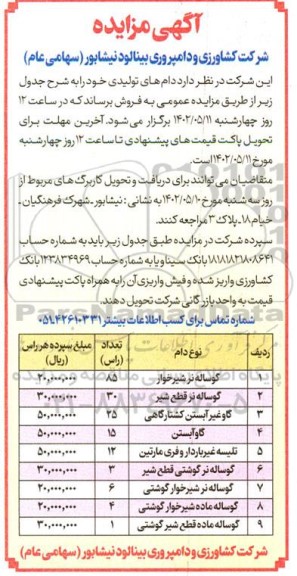 آگهی مزایده
شرکت کشاورزی و دامپروری بینالود نیشابور (سهامی عام)
این شرکت در نظر دارد دام های تولیدی خود را به شرح جدول
زیر از طریق مزایده عمومی به فروش برساند که در ساعت ۱۲
روز چهارشنبه ۱۴۰۲/۰۵/۱۱ برگزار می شود. آخرین مهلت برای
تحویل پاکت قیمت های پیشنهادی تا ساعت ۱۲ روز چهارشنبه
مورخ ۱۴۰۲/۰۵/۱۱ است.
متقاضیان می توانند برای دریافت و تحویل کاربرگ های مربوط از
روز سه شنبه مورخ ۱۴۰۲/۰۵/۱۰ به نشانی : نیشابور ـ شهرک فرهنگیان ـ
خیام ۱۸ ـ پلاک ۳ مراجعه کنند.
سپرده شرکت در مزایده طبق جدول زیر باید به شماره حساب
بانک سینا و یا به شماره حساب ۱۲۳۸۳۴۹۶۹ بانک
کشاورزی واریز شده و فیش واریزی آن را به همراه پاکت پیشنهادی
قیمت به واحد بازرگانی شرکت تحویل دهند.
شماره تماس برای کسب اطلاعات بیشتر: ۰۵۱ـ۴۲۶۱۰۳۳۱
ردیف نوع دام تعداد (راس) مبلغ سپرده هر راس (ریال)
۱ گوساله نر شیرخوار ۸۵ ۲۰,۰۰۰,۰۰۰
۲ گوساله نر قطع شیر ۳۰ ۳۰,۰۰۰,۰۰۰
۳ گاو غیر آبستن کشتارگاهی ۲۵ ۵۰,۰۰۰,۰۰۰
۴ گاو آبستن ۱۵ ۵۰,۰۰۰,۰۰۰
۵ تلیسه غیرباردار و فری مارتین ۱۲ ۵۰,۰۰۰,۰۰۰
۶ گوساله نر گوشتی قطع شیر ۳ ۳۰,۰۰۰,۰۰۰
۷ گوساله نر شیرخوار گوشتی ۶ ۲۰,۰۰۰,۰۰۰
۸ گوساله ماده شیرخوار گوشتی ۴ ۲۰,۰۰۰,۰۰۰
۹ گوساله ماده قطع شیر گوشتی ۱ ۳۰,۰۰۰,۰۰۰
شرکت کشاورزی و دامپروری بینالود نیشابور (سهامی عام)